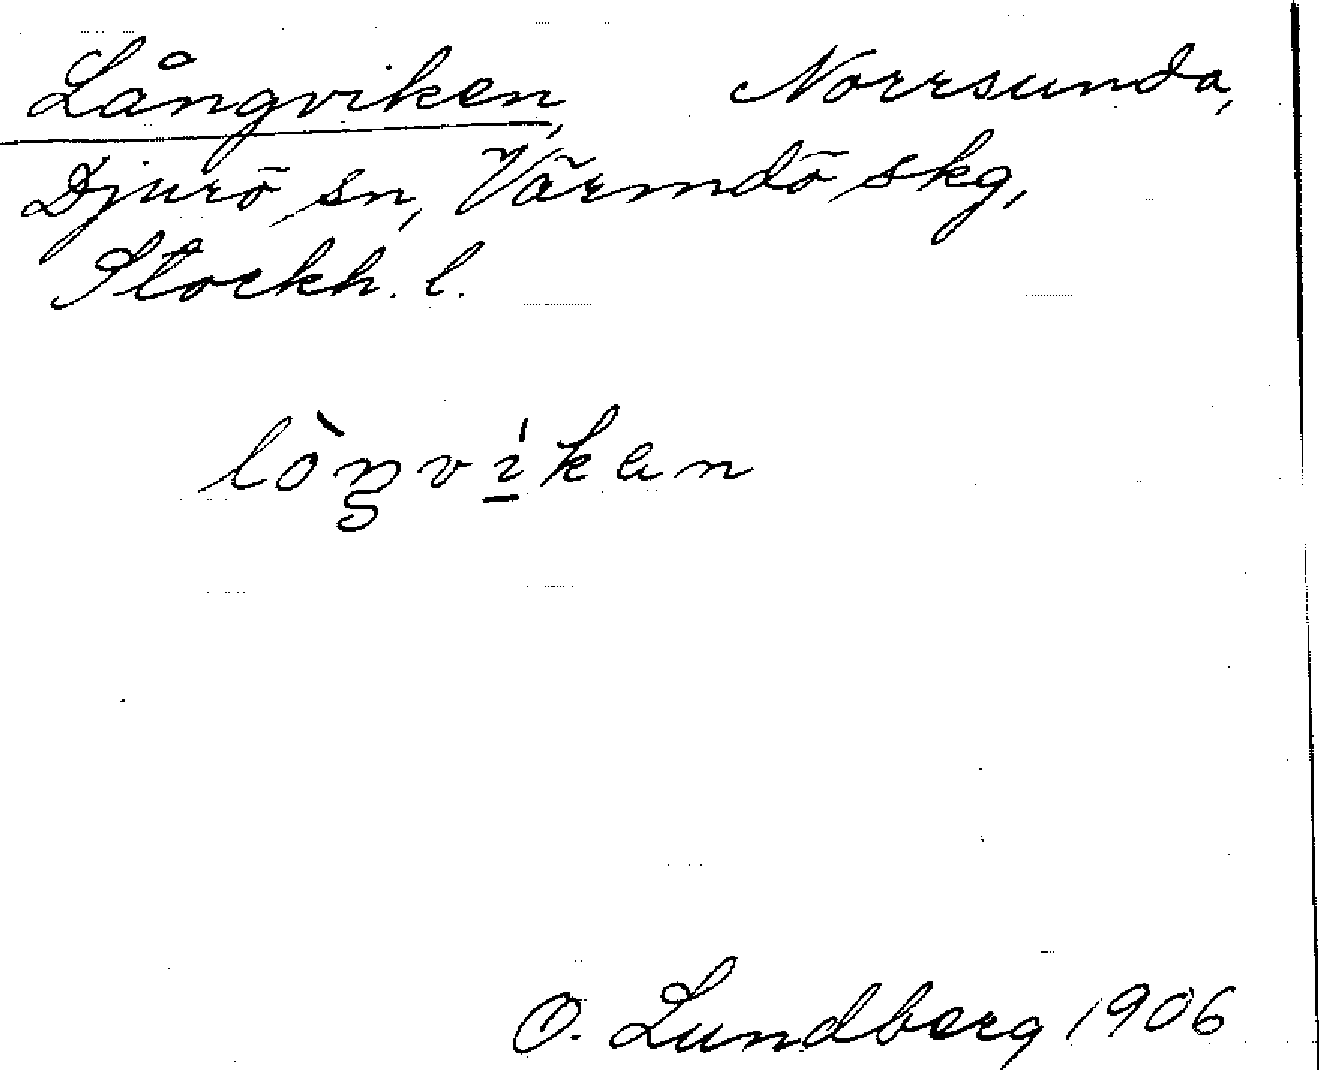 Långviken, Norrsunda,
Djurö sn, Värmdö skg,
Stockh. l.
lòŋví̲kən
O. Lundberg 1906